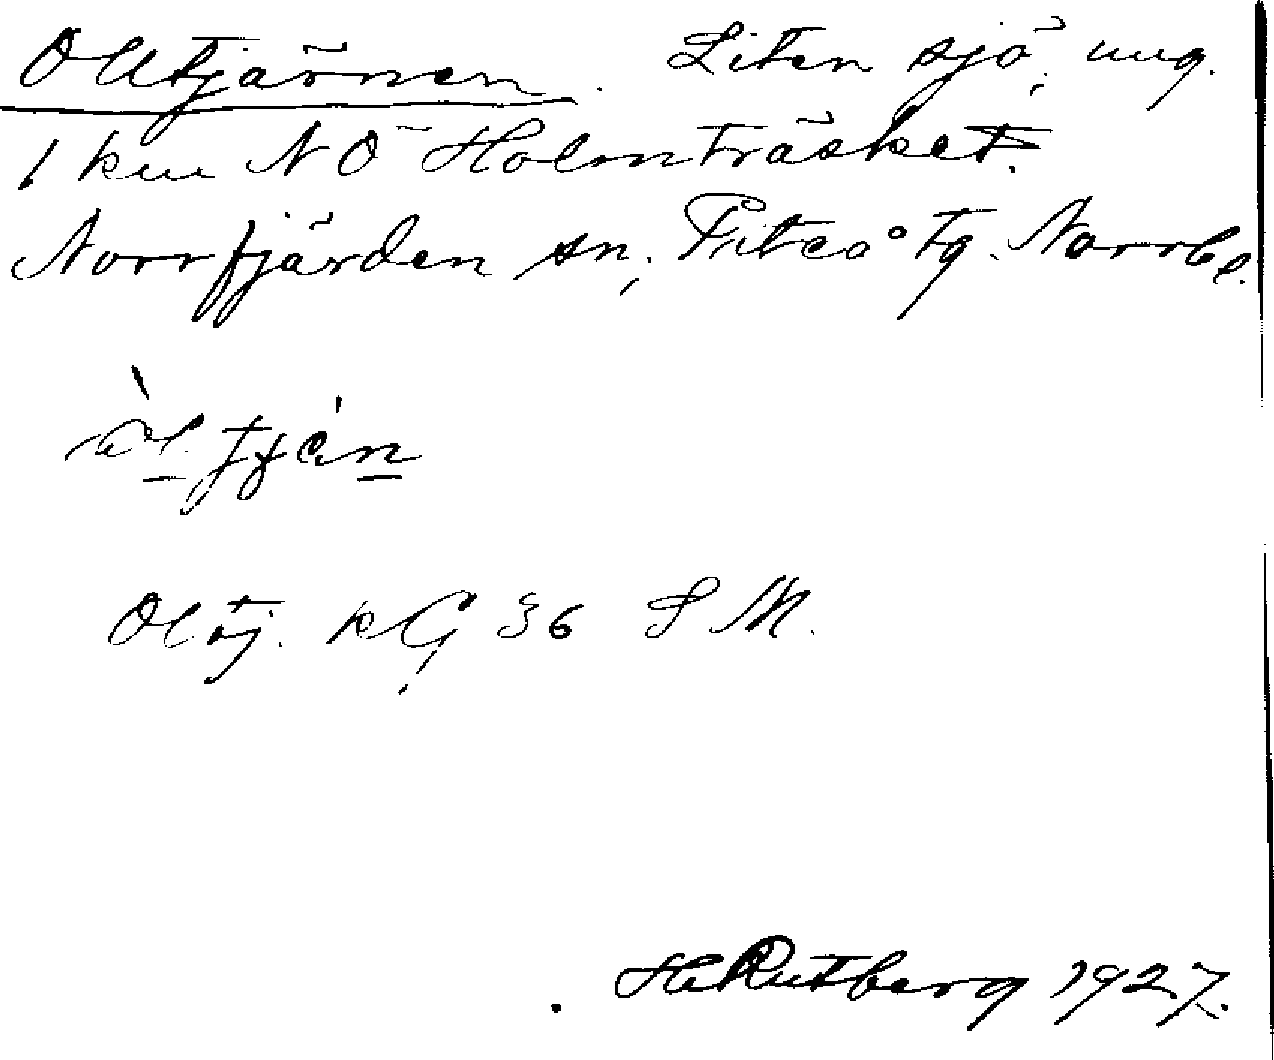 Olltjärnen. Liten sjö, ung.
1 km NÖ Holmträsket.
Norrfjärden sn, Piteå tg. Norrb l.
Oltj. KG 36 SM.
H Rutberg 1927.